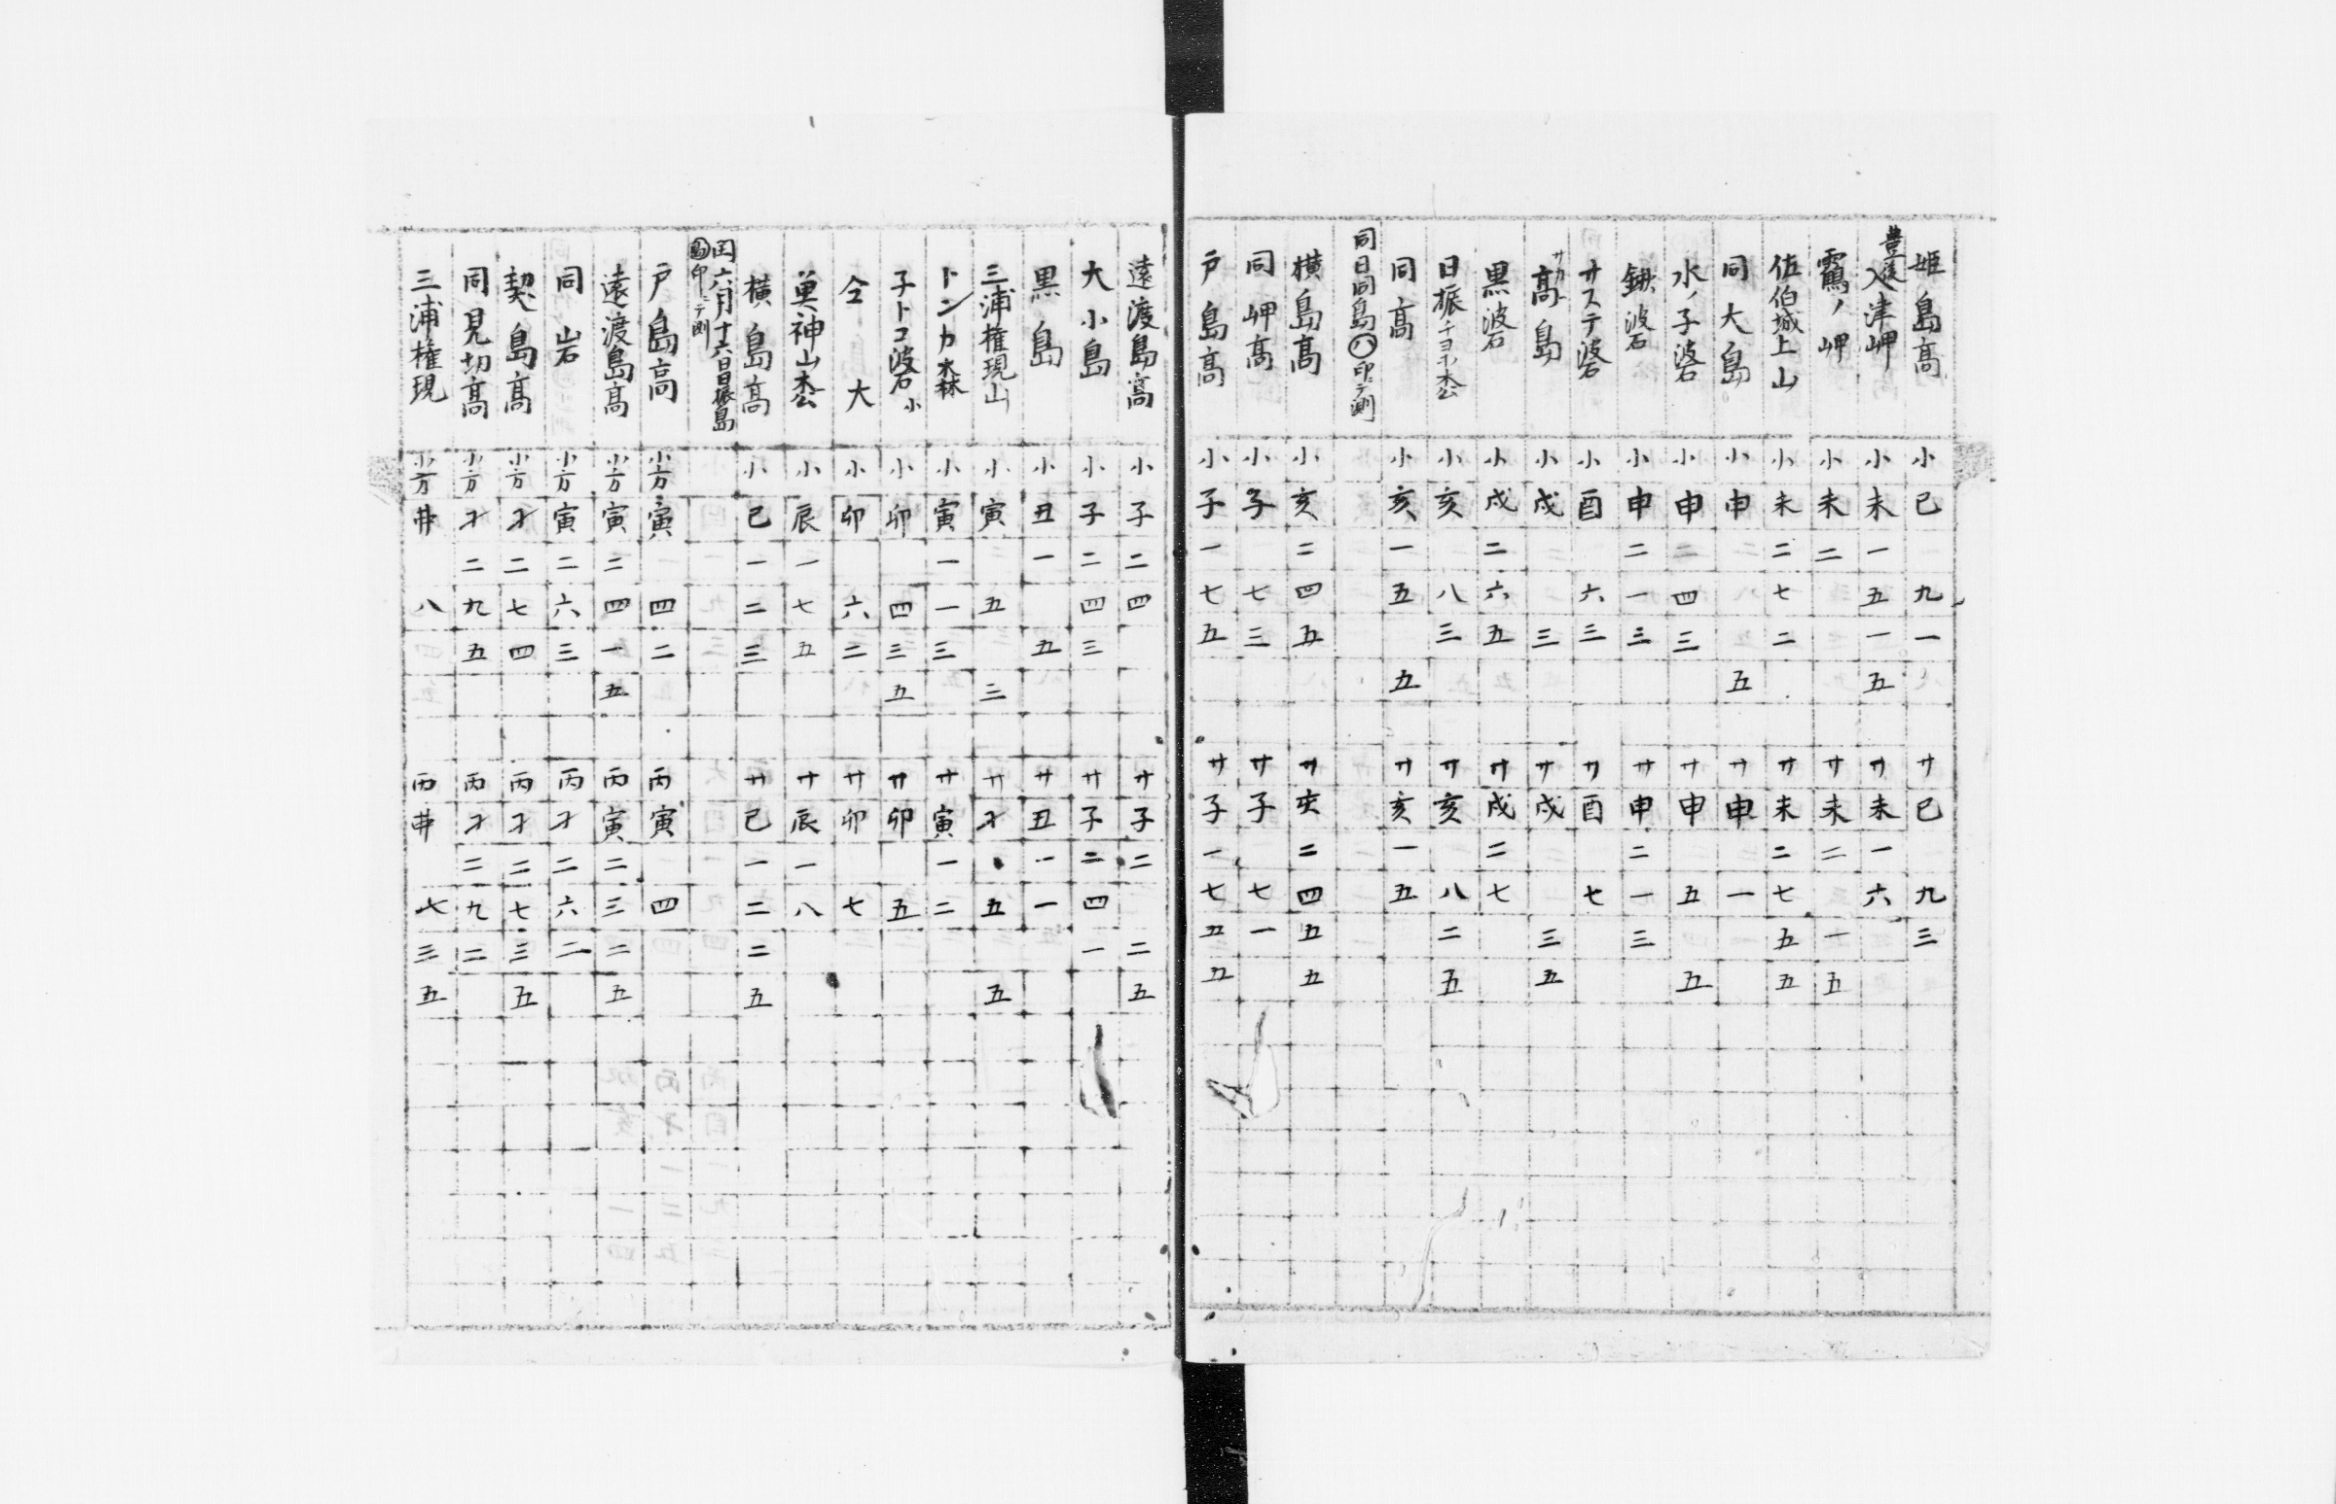 姫島高 小 巳 九一 廿 巳 九三
豊後入津岬 小 未 一五一五 廿 未 一六
鶴ノ岬 小 未 二 廿 未 二 一五
佐伯城上山 小 未 二七二 廿 未 二七五五
同大島 小 申 五 廿 申 一
水ノ子碆 小 申 四三 廿 申 五 五
鍬碆 小 申 二一三 廿 申 二一三
サステ碆 小 酉 六三 廿 酉 七
高島 小 戌 三 廿 戌 三五
黒碆 小 戌 二六五 廿 戌 二七
日振 小 亥 八三 廿 亥 八二五
同高 小 亥 一五 五 廿 亥 一五
同日同島㋩印ニテ測
横島高 小 亥 二四五 廿 亥 二四五五
同岬高 小 子 七三 廿 子 七一
戸島高 小 子 一七五 廿 子 一七五五
遠渡島高 小 子 二四 廿 子 二 二五
大小島 小 子 二四三 廿 子 二四一
黒島 小 丑 一 五 廿 丑 一一
三浦権現山 小 寅 五 三 廿 才 五 五
トンカ森 小 寅 一一三 廿 寅 一二
子トコ碆 小 小 卯 四三五 廿 卯 五
仝 大 小 卯 六二 廿 卯 七
神山 小 辰 一七五 廿 辰 一八
横島高 小 巳 一二三 廿 巳 一二二五
同六月十六日日振島
印ニテ測
戸島高 小方 寅 四二 丙 寅 四
遠渡島高 小方 寅 二四一五 丙 寅 二三二五
同岩 小方 寅 二六三 丙 才 二六二
契島高 小方 才 二七四 丙 才 二七三五
同見切高 小方 才 二九五 丙 才 二九二
三浦権現 小方 丑 八 丙 丑 七三五